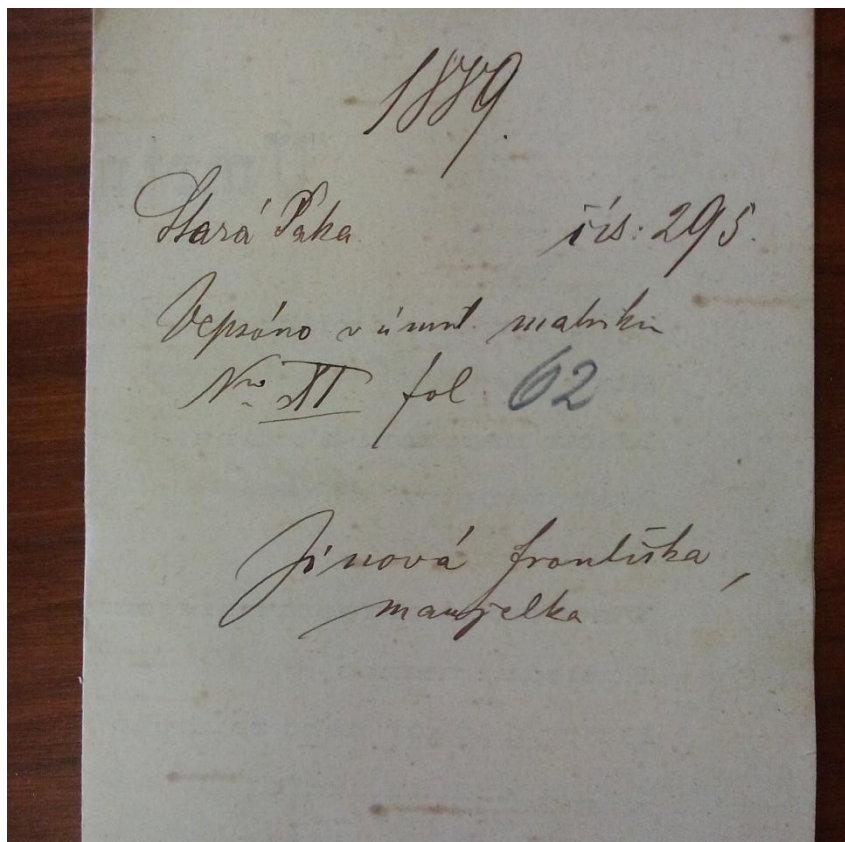 1889.
Stará Paka čís: 295.
Vepsáno v úmrt. matriku
Nro XI fol. 62
Jinová Františka,
manželka